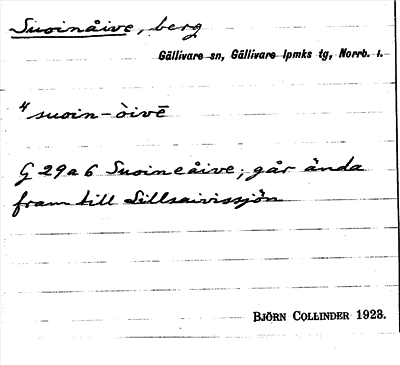 Suoinåive, berg
Gällivare sn, Gällivare lpmks tg, Norrb. l.
4 suoin-òivē
G 29 a 6 Suoineåive; går ända
fram till Lillsaivissjön
BJÖRN COLLINDER 1923.